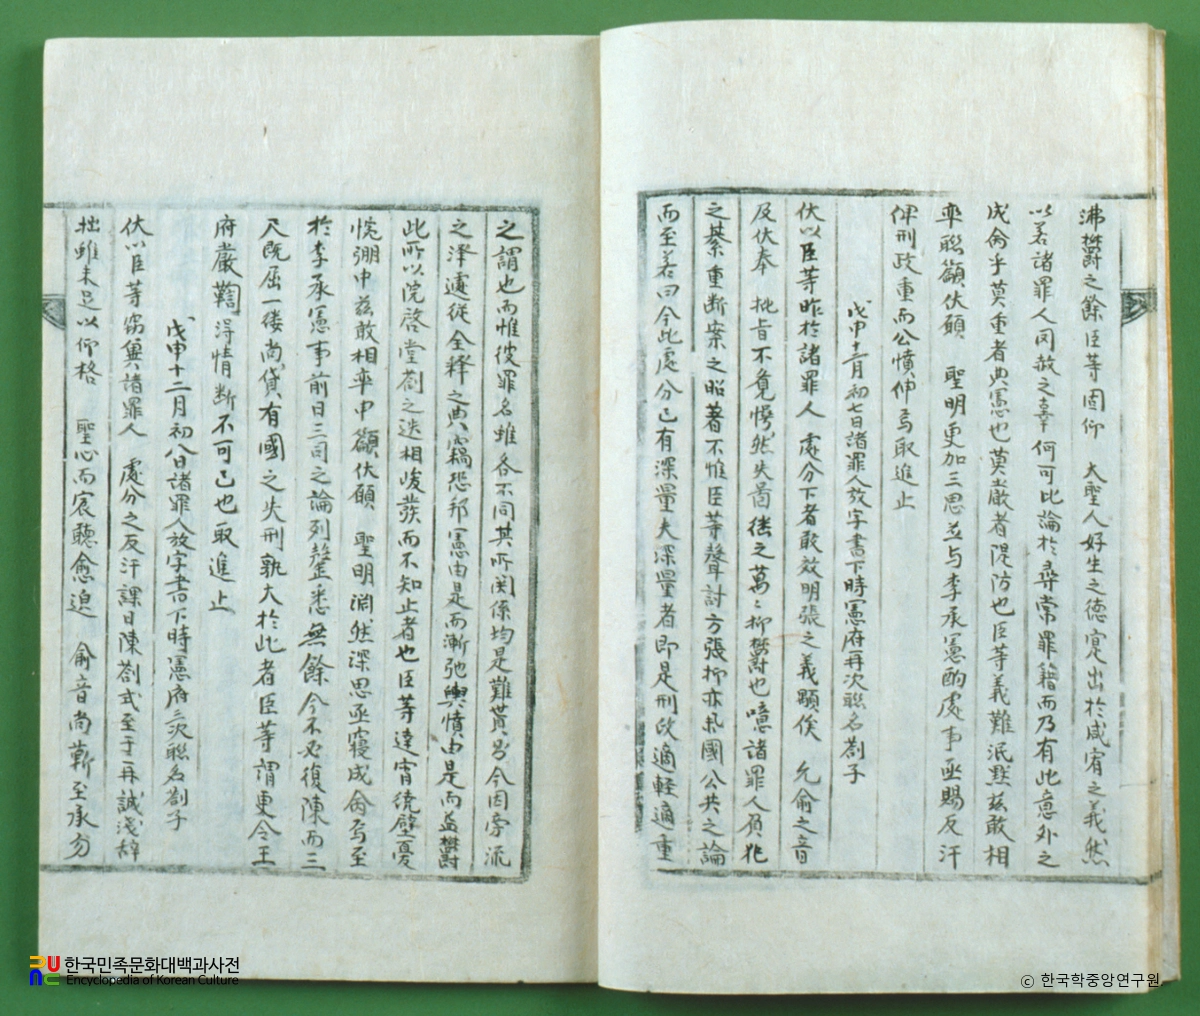 沸欝之餘臣等固仰 大聖人好生之德寔出於咸宥之義然
以若諸罪人同赦之辜何可比論於尋常罪籍而乃有此意外之
成命乎莫重者典憲也莫嚴者隄防也臣等義難泯默茲敢相
率聯籲伏願 聖明更加三思並与李承憲酌處事亟賜反汗
俾刑政重而公憤伸焉取進止
戊申十二月初七日諸罪人放字書下時憲府再次聯名劄子
伏以臣等昨於諸罪人 處分下者敢效明張之義顒俟 允兪之音
及伏奉 批旨不覺愕然失啚継之萬〻抑欝也噫諸罪人負犯
之綦重断案之昭著不惟臣等聲討方張抑亦永國公共之論
而至若曰今此處分已有深量夫深量者即是刑政適軽適重
之謂也而惟彼罪名雖各不同其所関係均是難貰曷今因旁流
之澤遽從全释之典竊恐邦憲由是而漸弛輿憤由是而益欝
此所以院啓堂劄之迭相峻蕟而不知止者也臣等達宵繞壁憂
慌弸中茲敢相率申籲伏願 聖明淵然深思亟寢成命焉至
於李承憲事前日三司之論列蘁悉無餘今不必復陳而三
尺既屈一偻尚貸有國之失刑孰大於此者臣等謂更令王
府嚴鞫得情断不可已也取進止
戊申十二月初八日諸罪人放字書下時憲府三次聯名劄子
伏以臣等窃與諸罪人 處分之反汗課日陳劄式至于再誠淺辞
拙雖未足以仰格 聖心而宸聽愈邈 兪音尚靳至承勿
한국민족문화대백과사전
Encyclopedia of Korean Culture
© 한국학중앙연구원